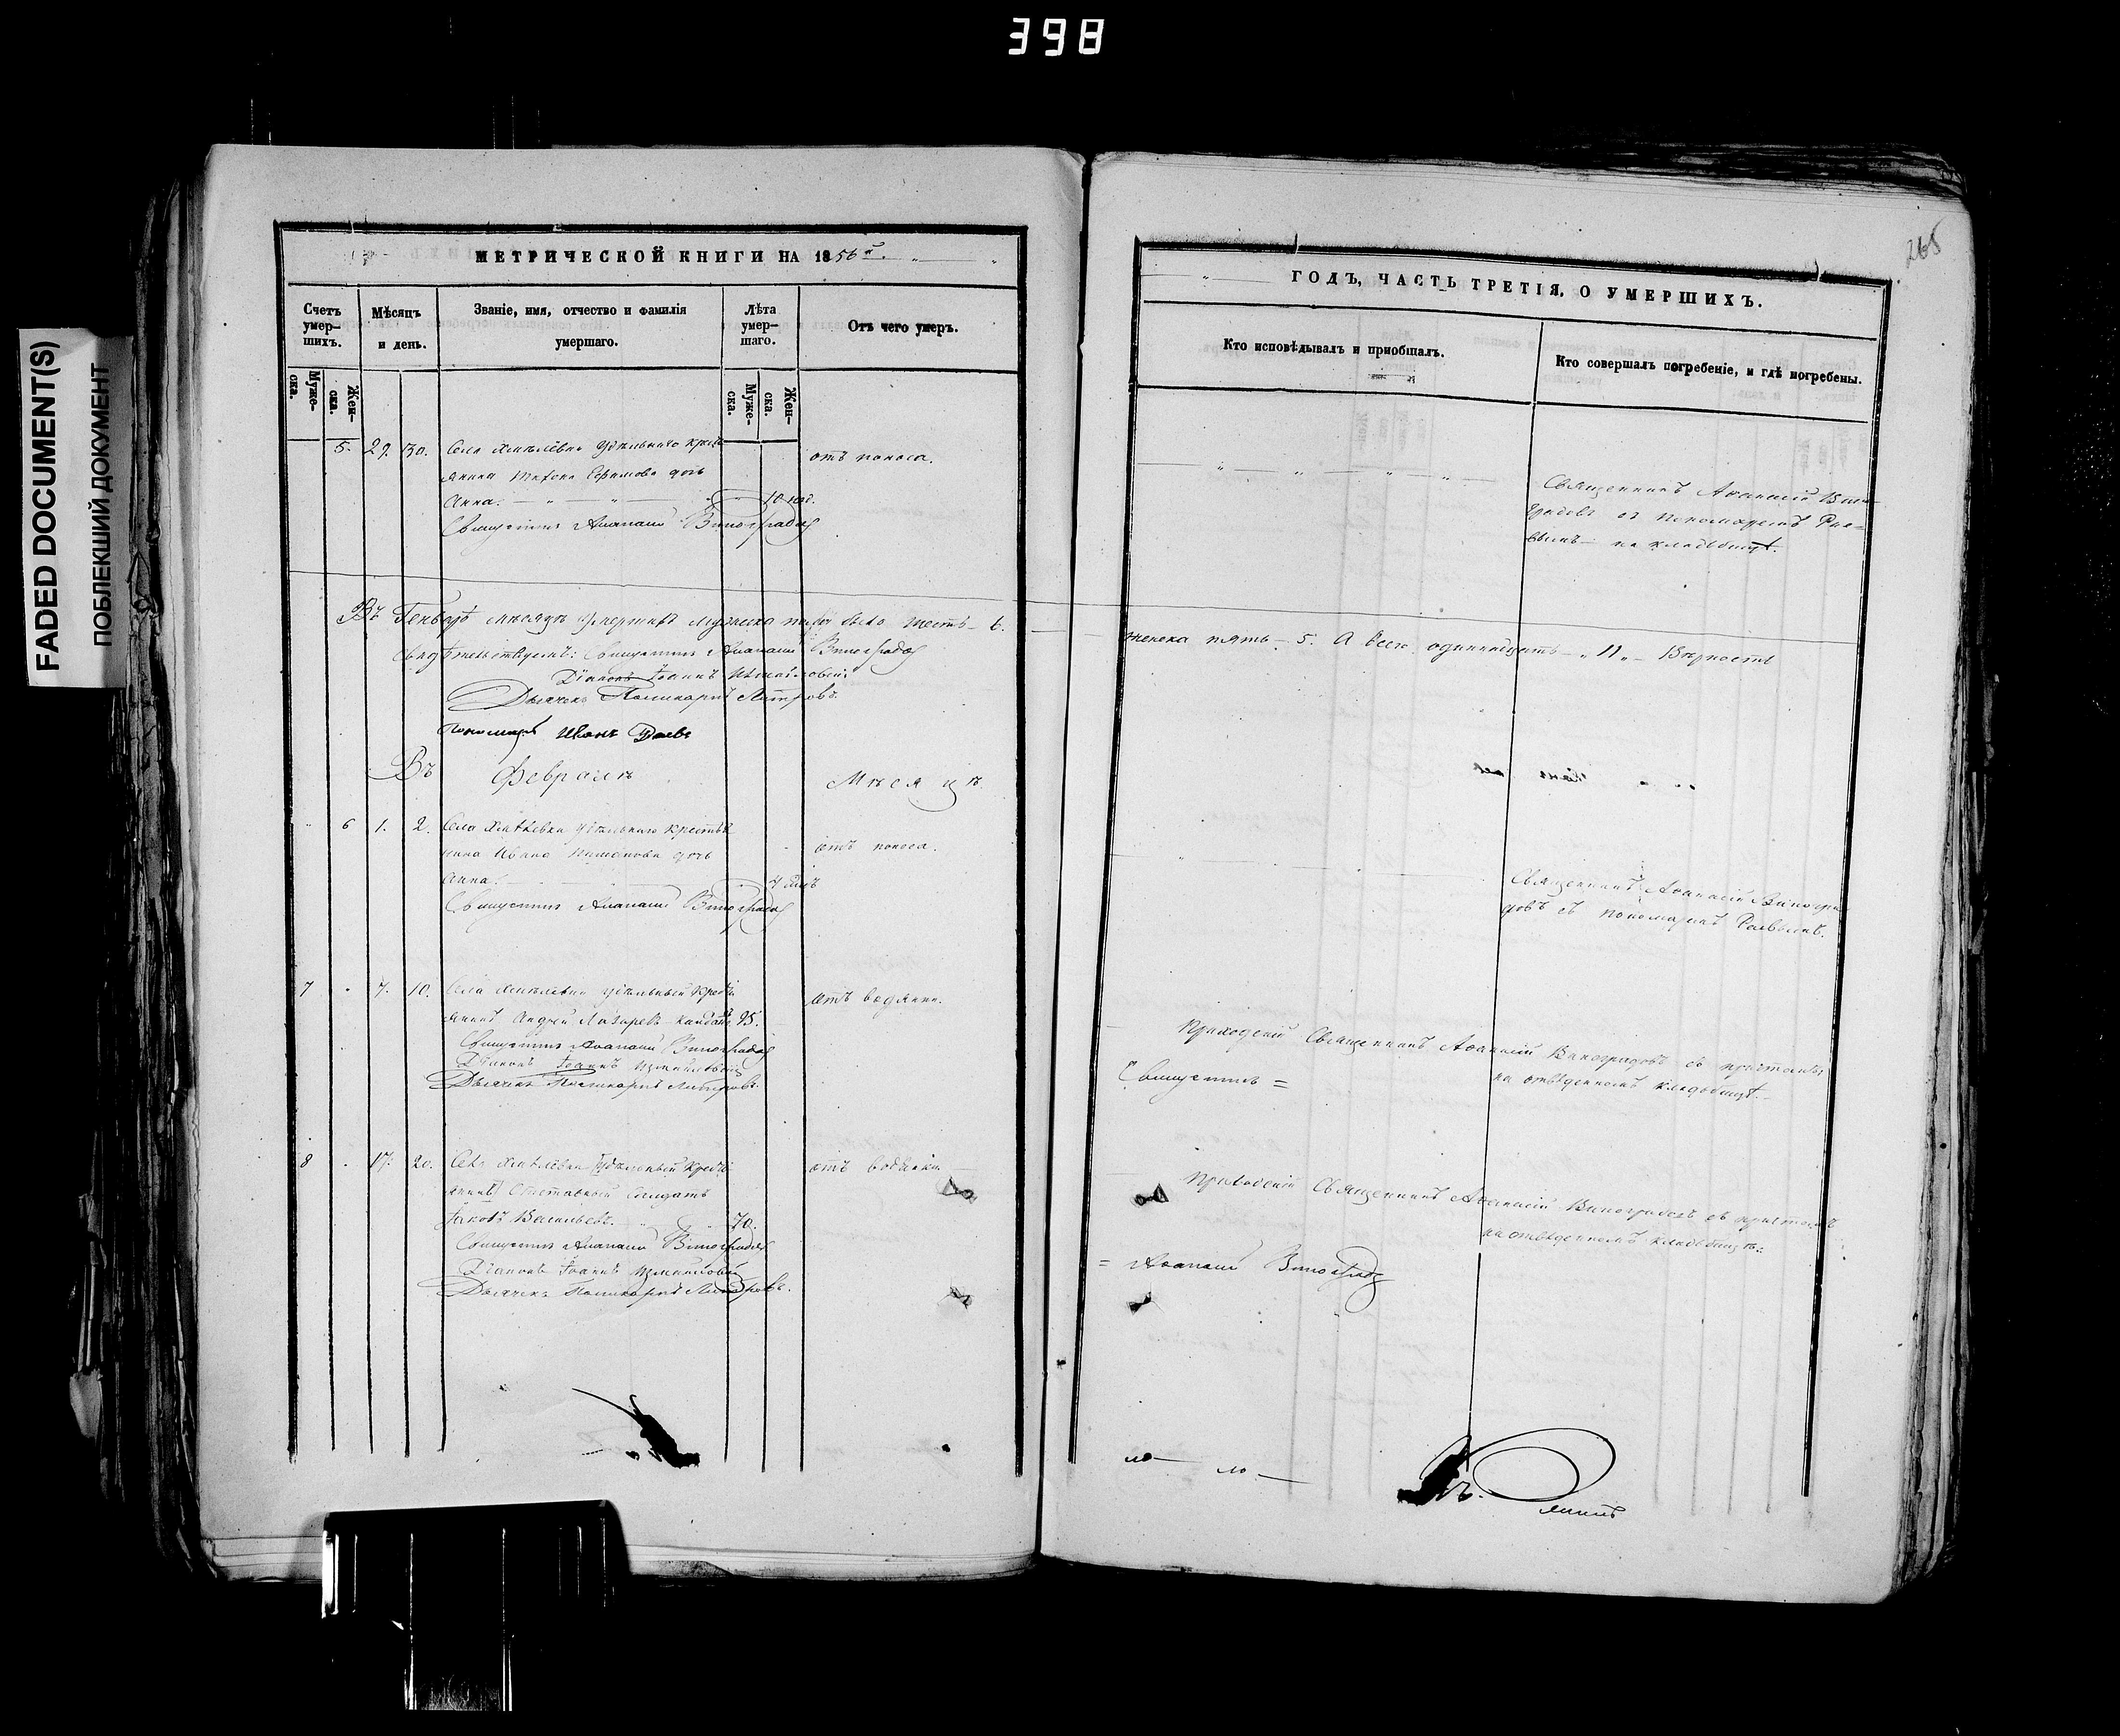 398
FADED DOCUMENT(S)
ПОБЛЕКШИЙ ДОКУМЕНТ
МЕТРИЧЕСКОЙ КНИГИ НА 1856й.
Счетъ умер-шихъ.
Мѣсяцъ и день.
Званіе, имя, отчество и фамилія умершаго.
Лѣта умер-шаго.
Отъ чего умеръ.
Муже-ска.
Жен-ска.
Муже-ска.
Жен-ска.
5. 29. 30. Села Удѣльнаго крест
янина Ефимова дочь
Анна. 10
отъ поноса.
Священникъ Аѳанасій Виноградовъ
Въ Генварѣ мѣсяцѣ умершихъ мужеска пола было шесть 6.
Священникъ Аѳанасій Виноградовъ
Діаконъ Іоаннъ Измайловскій
Дьячекъ Поликарпъ
Пономарь Иванъ Раевъ
Въ Февралѣ Мѣсяцѣ
6 1. 2. Села Удѣльнаго крестья
нина Ивана дочь
Анна. 4
отъ поноса.
Священникъ Аѳанасій Виноградовъ
7 7. 10. Села удѣльный крест
янинъ Андрей Лазаревъ 95.
отъ водянки.
Священникъ Аѳанасій Виноградовъ
Діаконъ Іоаннъ Измайловскій
Дьячекъ Поликарпъ
8 17. 20. Села Удѣльный крест
янинъ Отставный Солдатъ
Іаковъ Васильевъ. 70.
отъ водянки
Священникъ Аѳанасій Виноградовъ
Діаконъ Іоаннъ Измайловскій
Дьячекъ Поликарпъ
265
ГОДЪ, ЧАСТЬ ТРЕТІЯ, О УМЕРШИХЪ.
Кто исповѣдывалъ и пріобщалъ.
Кто совершалъ погребеніе, и гдѣ погребены.
Священникъ Аѳанасій Вино
градовъ съ Пономаремъ Рае=
вымъ на кладбищѣ.
женска пять 5. А всего одиннадцать „11„ Вѣрность
Священникъ Аѳанасій Виногра
довъ съ пономаремъ Раевымъ.
Приходскій Священникъ Аѳанасій Виноградовъ съ причтомъ;
на отведенномъ кладбищѣ.
Священникъ =
Приходскій Священникъ Аѳанасій Виноградовъ съ причтомъ
на отведенномъ кладбищѣ.
= Аѳанасій Виноградовъ